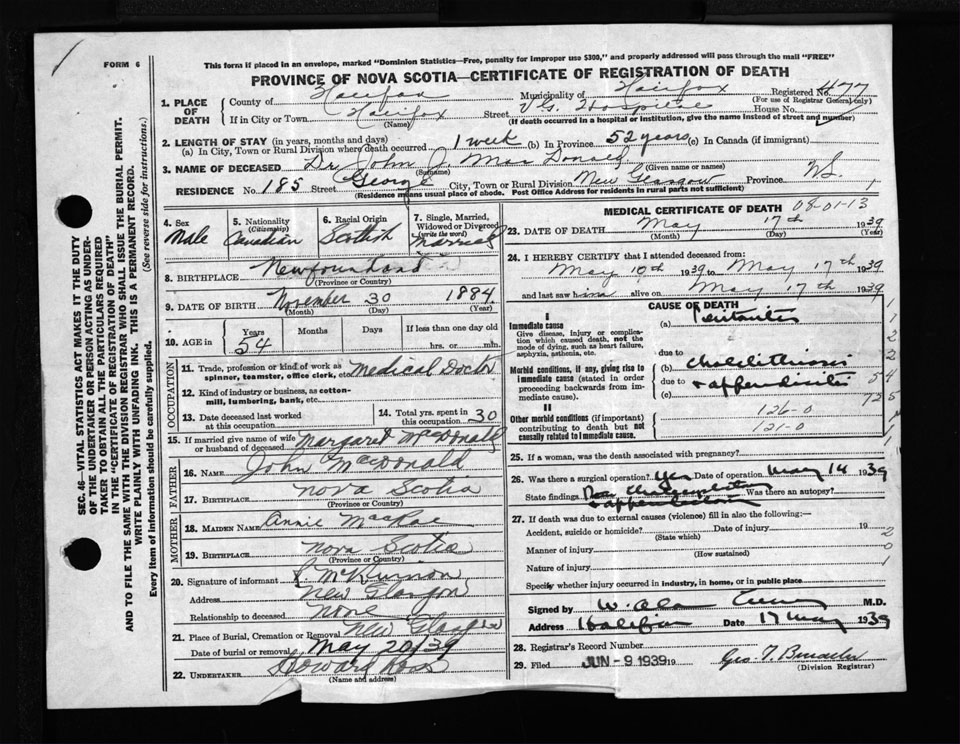 FORM 6
This form if placed in an envelope, marked "Dominion Statistics—Free, penalty for improper use $300," and properly addressed will pass through the mail "FREE"
PROVINCE OF NOVA SCOTIA—CERTIFICATE OF REGISTRATION OF DEATH
1. PLACE OF DEATH
County of Halifax Municipality of Halifax Registered No. 477
(For use of Registrar General only)
If in City or Town Halifax Street V.G. Hospital House No.
(Name) (If death occurred in a hospital or institution, give the name instead of street and number)
2. LENGTH OF STAY (in years, months and days)
(a) In City, Town or Rural Division where death occurred 1 week (b) In Province 52 years (c) In Canada (if immigrant)
3. NAME OF DECEASED Dr John J. MacDonald
(Surname) (Given name or names)
RESIDENCE No. 185 Street George City, Town or Rural Division New Glasgow Province N.S.
(Residence means usual place of abode. Post Office Address for residents in rural parts not sufficient)
4. Sex Male
5. Nationality (Citizenship) Canadian
6. Racial Origin Scottish
7. Single, Married, Widowed or Divorced (write the word) Married
8. BIRTHPLACE Newfoundland
(Province or Country)
9. DATE OF BIRTH November 30 1884
(Month) (Day) (Year)
10. AGE in Years 54 Months Days If less than one day old hrs. or min.
OCCUPATION
11. Trade, profession or kind of work as spinner, teamster, office clerk, etc. Medical Doctor
12. Kind of industry or business, as cotton-mill, lumbering, bank, etc.
13. Date deceased last worked at this occupation
14. Total yrs. spent in 30
15. If married give name of wife or husband of deceased Margaret McDonald
FATHER
16. NAME John Macdonald
17. BIRTHPLACE Nova Scotia
(Province or Country)
MOTHER
18. MAIDEN NAME Annie MacRae
19. BIRTHPLACE Nova Scotia
(Province or Country)
20. Signature of informant McKinnon
Address New Glasgow
Relationship to deceased None
21. Place of Burial, Cremation or Removal New Glasgow
Date of burial or removal May 20/39
22. UNDERTAKER Howard Ross
(Name and address)
MEDICAL CERTIFICATE OF DEATH 08-01-13
23. DATE OF DEATH May 17th 1939
(Month) (Day) (Year)
24. I HEREBY CERTIFY that I attended deceased from:
May 10th 1939 to May 17th 1939
and last saw him alive on May 17th 1939
CAUSE OF DEATH
I
Immediate cause
Give disease, injury or complication which caused death, not the mode of dying, such as heart failure, asphyxia, asthenia, etc.
(a) Peritonitis
due to
Morbid conditions, if any, giving rise to immediate cause (stated in order proceeding backwards from immediate cause).
(b) Cholelithiasis
due to + appendicitis
(c)
II
Other morbid conditions (if important) contributing to death but not causally related to immediate cause.
126-0
121-0
25. If a woman, was the death associated with pregnancy?
26. Was there a surgical operation? Yes Date of operation May 14 1939
State findings
+ appendectomy Was there an autopsy?
27. If death was due to external causes (violence) fill in also the following:—
Accident, suicide or homicide? Date of injury 19
(State which)
Manner of injury
(How sustained)
Nature of injury
Specify whether injury occurred in industry, in home, or in public place
Signed by W. Alan M.D.
Address Halifax Date 17 May 1939
28. Registrar's Record Number
29. Filed JUN - 9 1939 19
(Division Registrar)
SEC. 46—VITAL STATISTICS ACT MAKES IT THE DUTY
OF THE UNDERTAKER OR PERSON ACTING AS UNDER-
TAKER TO OBTAIN ALL THE PARTICULARS REQUIRED
IN THE "CERTIFICATE OF REGISTRATION OF DEATH"
AND TO FILE THE SAME WITH THE DIVISION REGISTRAR WHO SHALL ISSUE THE BURIAL PERMIT.
WRITE PLAINLY WITH UNFADING INK. THIS IS A PERMANENT RECORD.
Every item of information should be carefully supplied. (See reverse side for instructions.)